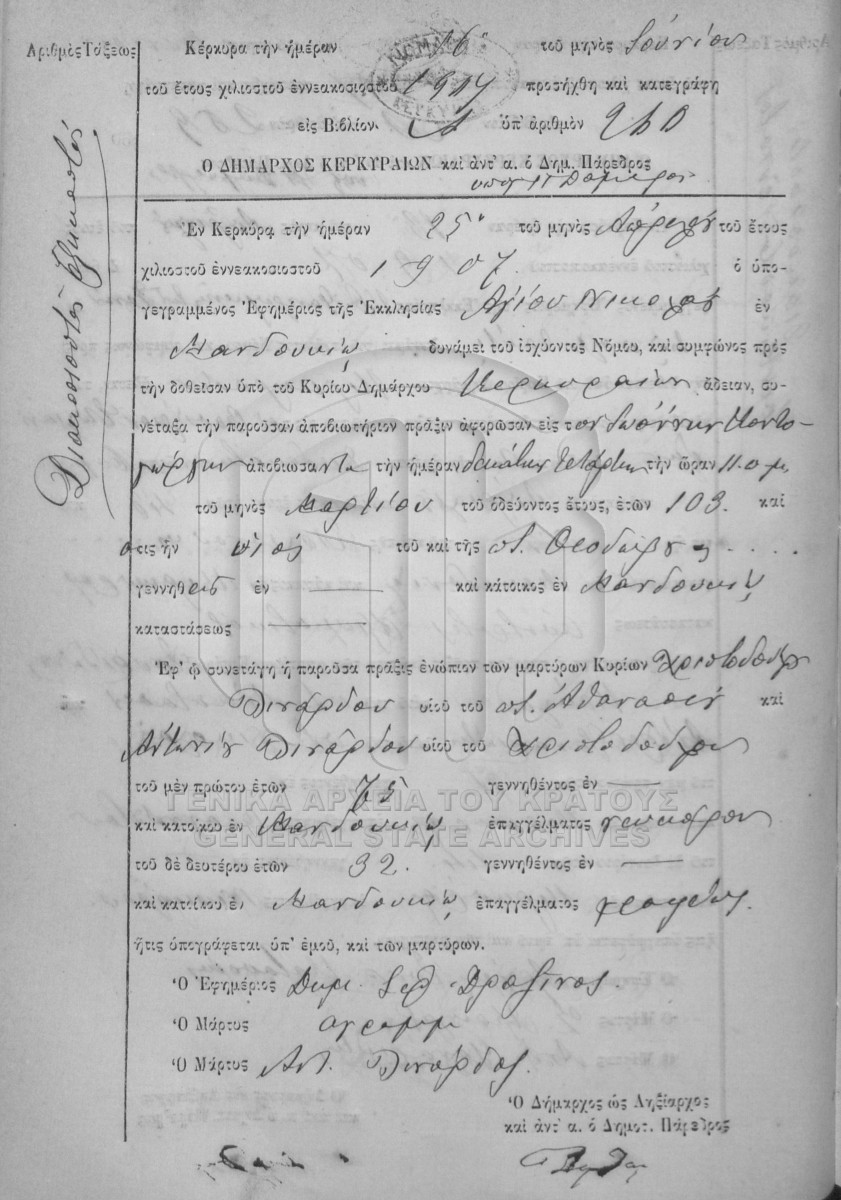 Ἀριθμὸς Τάξεως
Διακοσιοστὸς ἑξηκοστός
Κέρκυρα τὴν ἡμέραν 16 τοῦ μηνὸς Ἰουνίου
τοῦ ἔτους χιλιοστοῦ ἐννεακοσιοστοῦ 1907 προσήχθη καὶ κατεγράφη
εἰς Βιβλίον Α ὑπ' ἀριθμὸν 260
Ο ΔΗΜΑΡΧΟΣ ΚΕΡΚΥΡΑΙΩΝ καὶ ἀντ' α. ὁ Δημ. Πάρεδρος
Ἐν Κερκύρᾳ τὴν ἡμέραν 25 τοῦ μηνὸς Ἀπριλίου τοῦ ἔτους
χιλιοστοῦ ἐννεακοσιοστοῦ 1907 ὁ ὑπο-
γεγραμμένος Ἐφημέριος τῆς Ἐκκλησίας Ἁγίου Νικολάου ἐν
Μανδουκίῳ δυνάμει τοῦ ἰσχύοντος Νόμου, καὶ συμφώνος πρὸς
τὴν δοθεῖσαν ὑπὸ τοῦ Κυρίου Δημάρχου Κερκυραίων ἄδειαν, συ-
νέταξα τὴν παροῦσαν ἀποβιωτήριον πρᾶξιν ἀφορῶσαν εἰς τον Ἰωάννην Κοντο
γιώργην ἀποβιωσαντα τὴν ἡμέραν δεκάτην τετάρτην τὴν ὥραν 11 π μ
τοῦ μηνὸς Μαρτίου τοῦ ὁδεύοντος ἔτους, ἐτῶν 103. καὶ
στις ἦν υἱὸς τοῦ καὶ τῆς π. Θεοδώρου
γεννηθεὶς ἐν — καὶ κάτοικος ἐν Μανδουκίῳ
καταστάσεως —
Ἐφ' ᾧ συνετάγη ἡ παροῦσα πρᾶξις ἐνώπιον τῶν μαρτύρων Κυρίων Χριστοδούλου
Δινάρδου υἱοῦ τοῦ π. Ἀθανασίου καὶ
Ἀντωνίου Δινάρδου υἱοῦ τοῦ Χριστοδούλου
τοῦ μὲν πρώτου ἐτῶν 75 γεννηθέντος ἐν —
καὶ κατοίκου ἐν Μανδουκίῳ ἐπαγγέλματος
τοῦ δὲ δευτέρου ἐτῶν 32. γεννηθέντος ἐν —
καὶ κατοίκου ἐν Μανδουκίῳ ἐπαγγέλματος γραφέως.
ἥτις ὑπογράφεται ὑπ' ἐμοῦ, καὶ τῶν μαρτύρων.
Ὁ Ἐφημέριος
Ὁ Μάρτυς αγραμμ
Ὁ Μάρτυς Αντ. Δινάρδος.
Ὁ Δήμαρχος ὡς Ληξίαρχος
καὶ ἀντ' α. ὁ Δημοτ. Πάρεδρος
ΓΕΝΙΚΑ ΑΡΧΕΙΑ ΤΟΥ ΚΡΑΤΟΥΣ
GENERAL STATE ARCHIVES